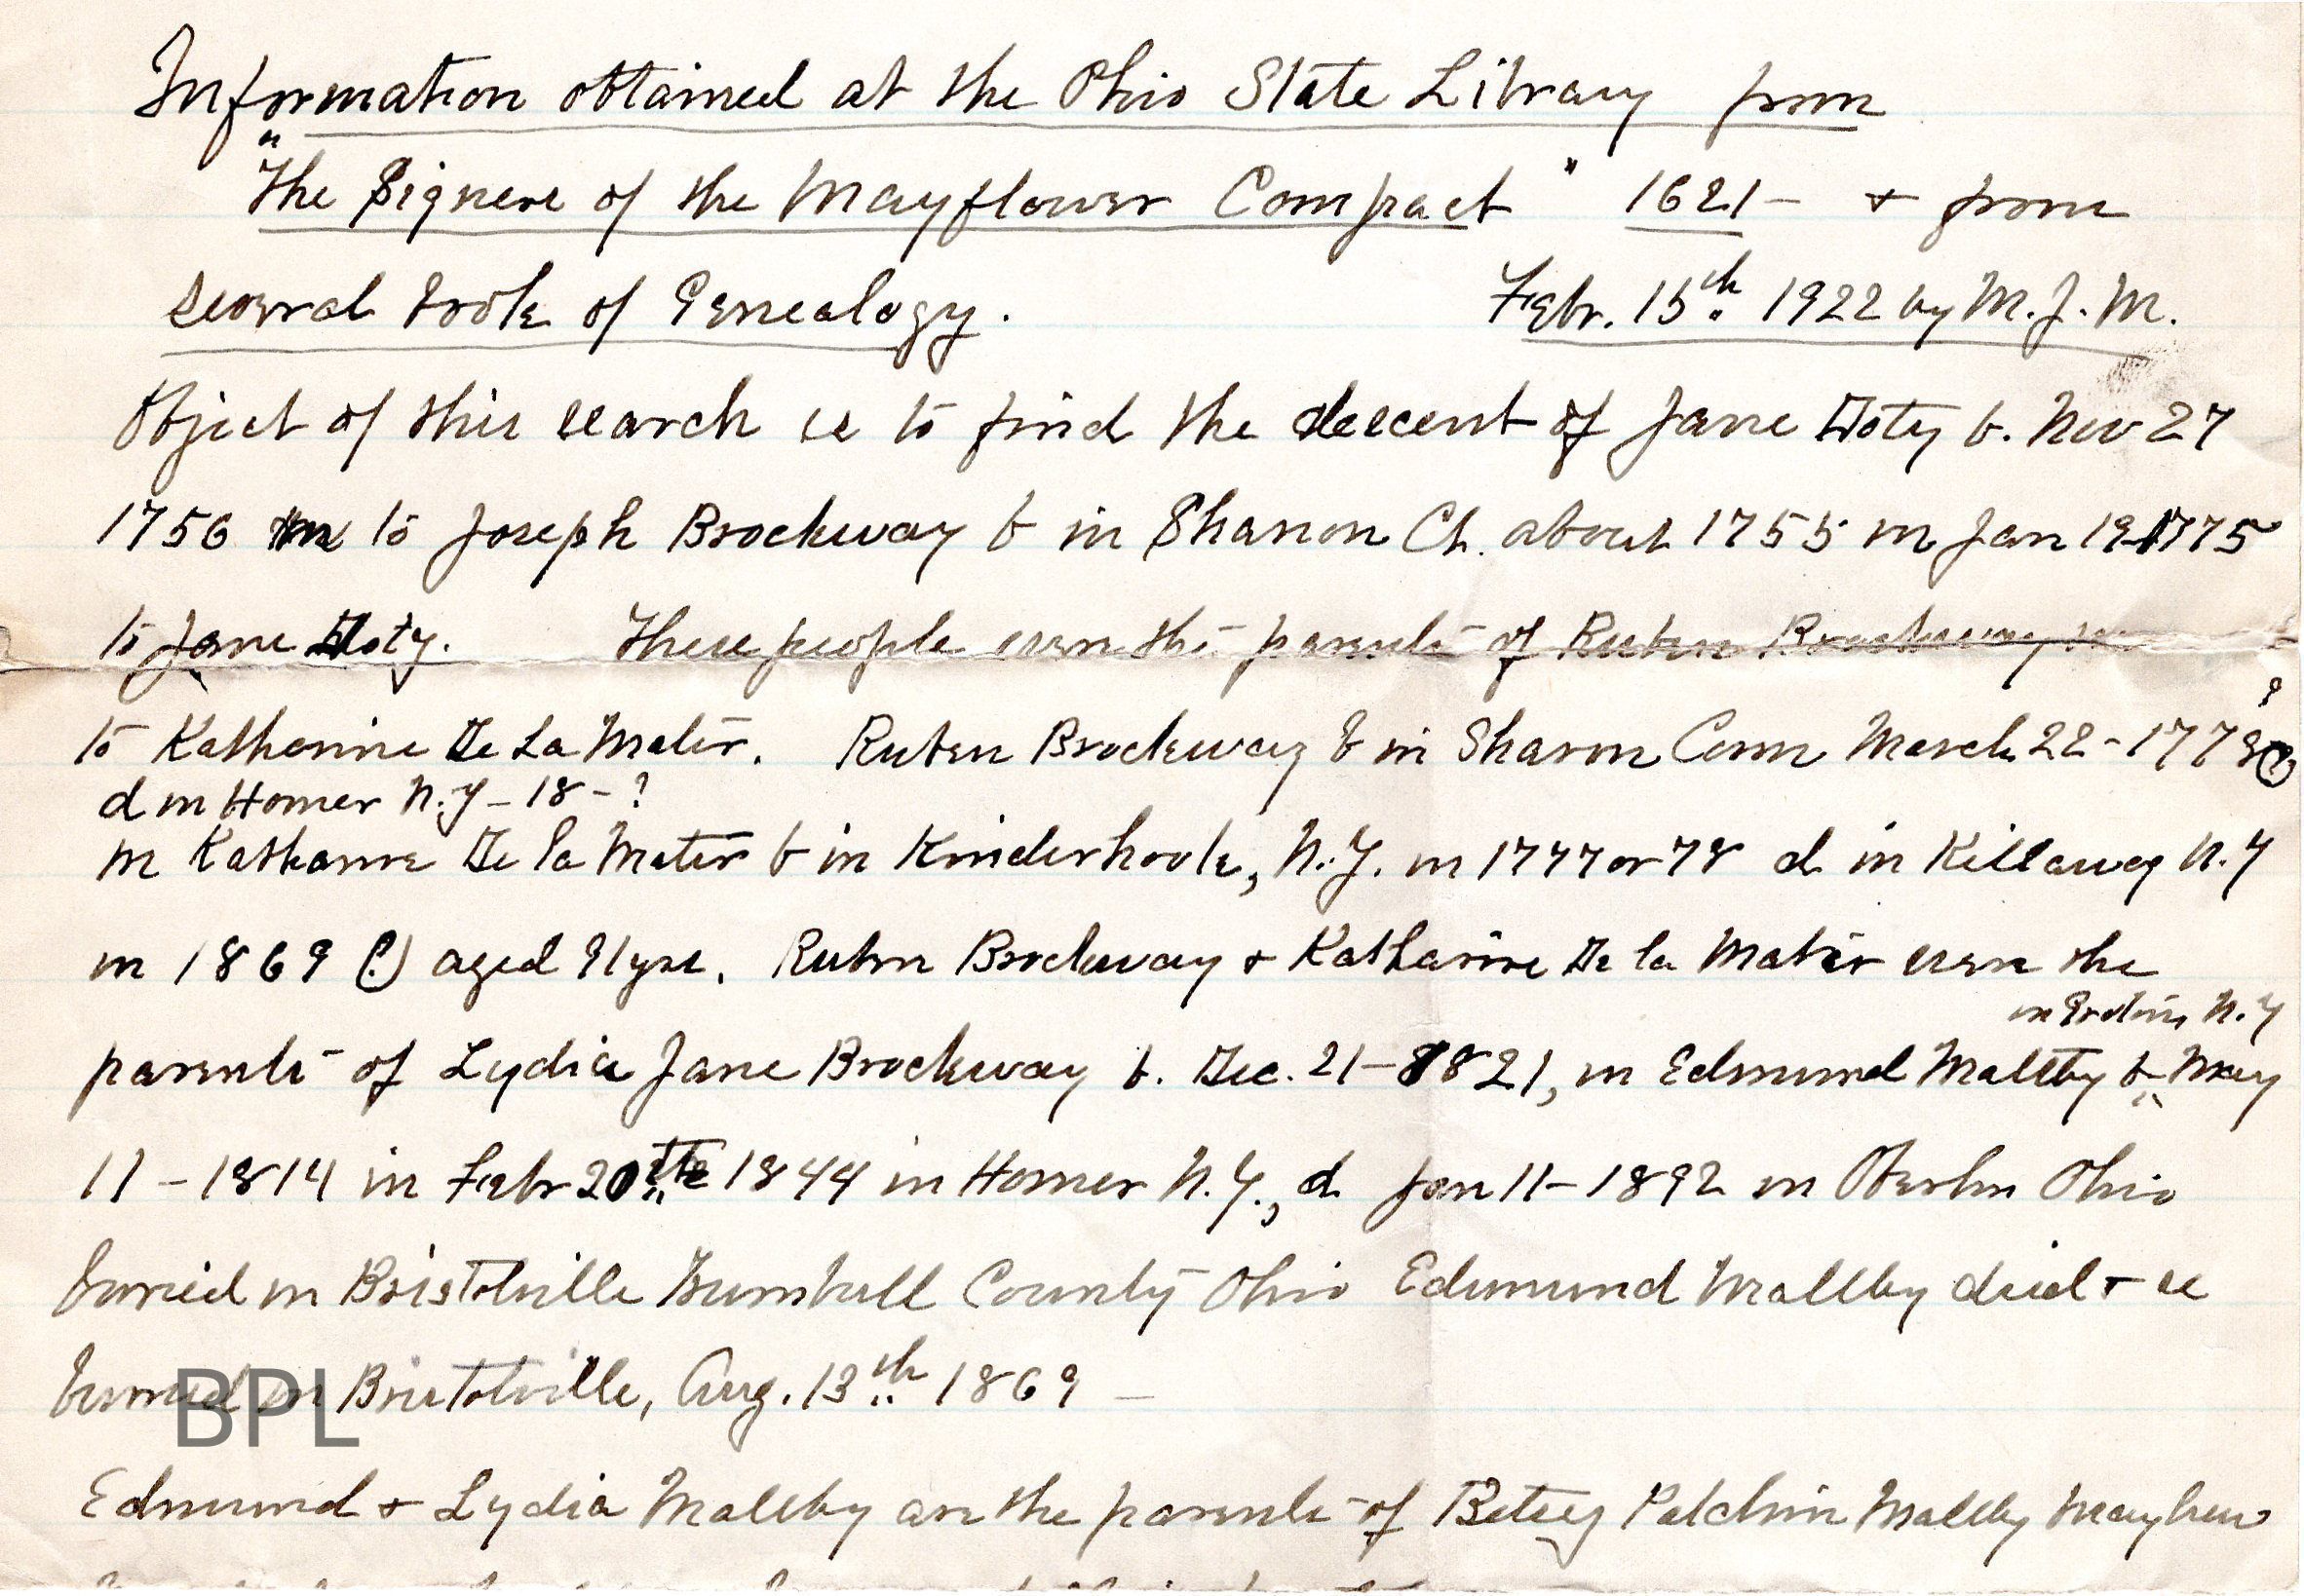 Information obtained at the Ohio State Library from
"The Signers of the Mayflower Compact" 1621- + from
several books of Genealogy. Febr. 15th 1922 by M.J.M.
Object of this search is to find the descent of Jane Doty b. Nov 27
1756 m to Joseph Brockway b in Sharon Ct. about 1755 m Jan 19-1775
to Jane Doty. These people were the parents of Ruben Brockway m
to Katherine De La Mater. Ruben Brockway b in Sharon Conn March 22-1778 (?)
d in Homer N.Y - 18-?
m Katharine De la Mater b in Kinderhook, N.Y. in 1777 or 78 d in Killawog N.Y
in 1869 (?) aged 91 yrs. Ruben Brockway + Katharine De la Mater were the
in N.Y
parents of Lydia Jane Brockway b. Dec. 21-1821, m Edmund Maltby b. May
11-1814 in Febr 20th 1844 in Homer N.Y., d Jan 11-1892 in Oberlin Ohio
buried in Bristolville Trumbull County Ohio Edmund Maltby died + is
buried in Bristolville, Aug. 13th 1869 -
Edmund + Lydia Maltby are the parents of Betsey Patchin Maltby Mayhew
BPL